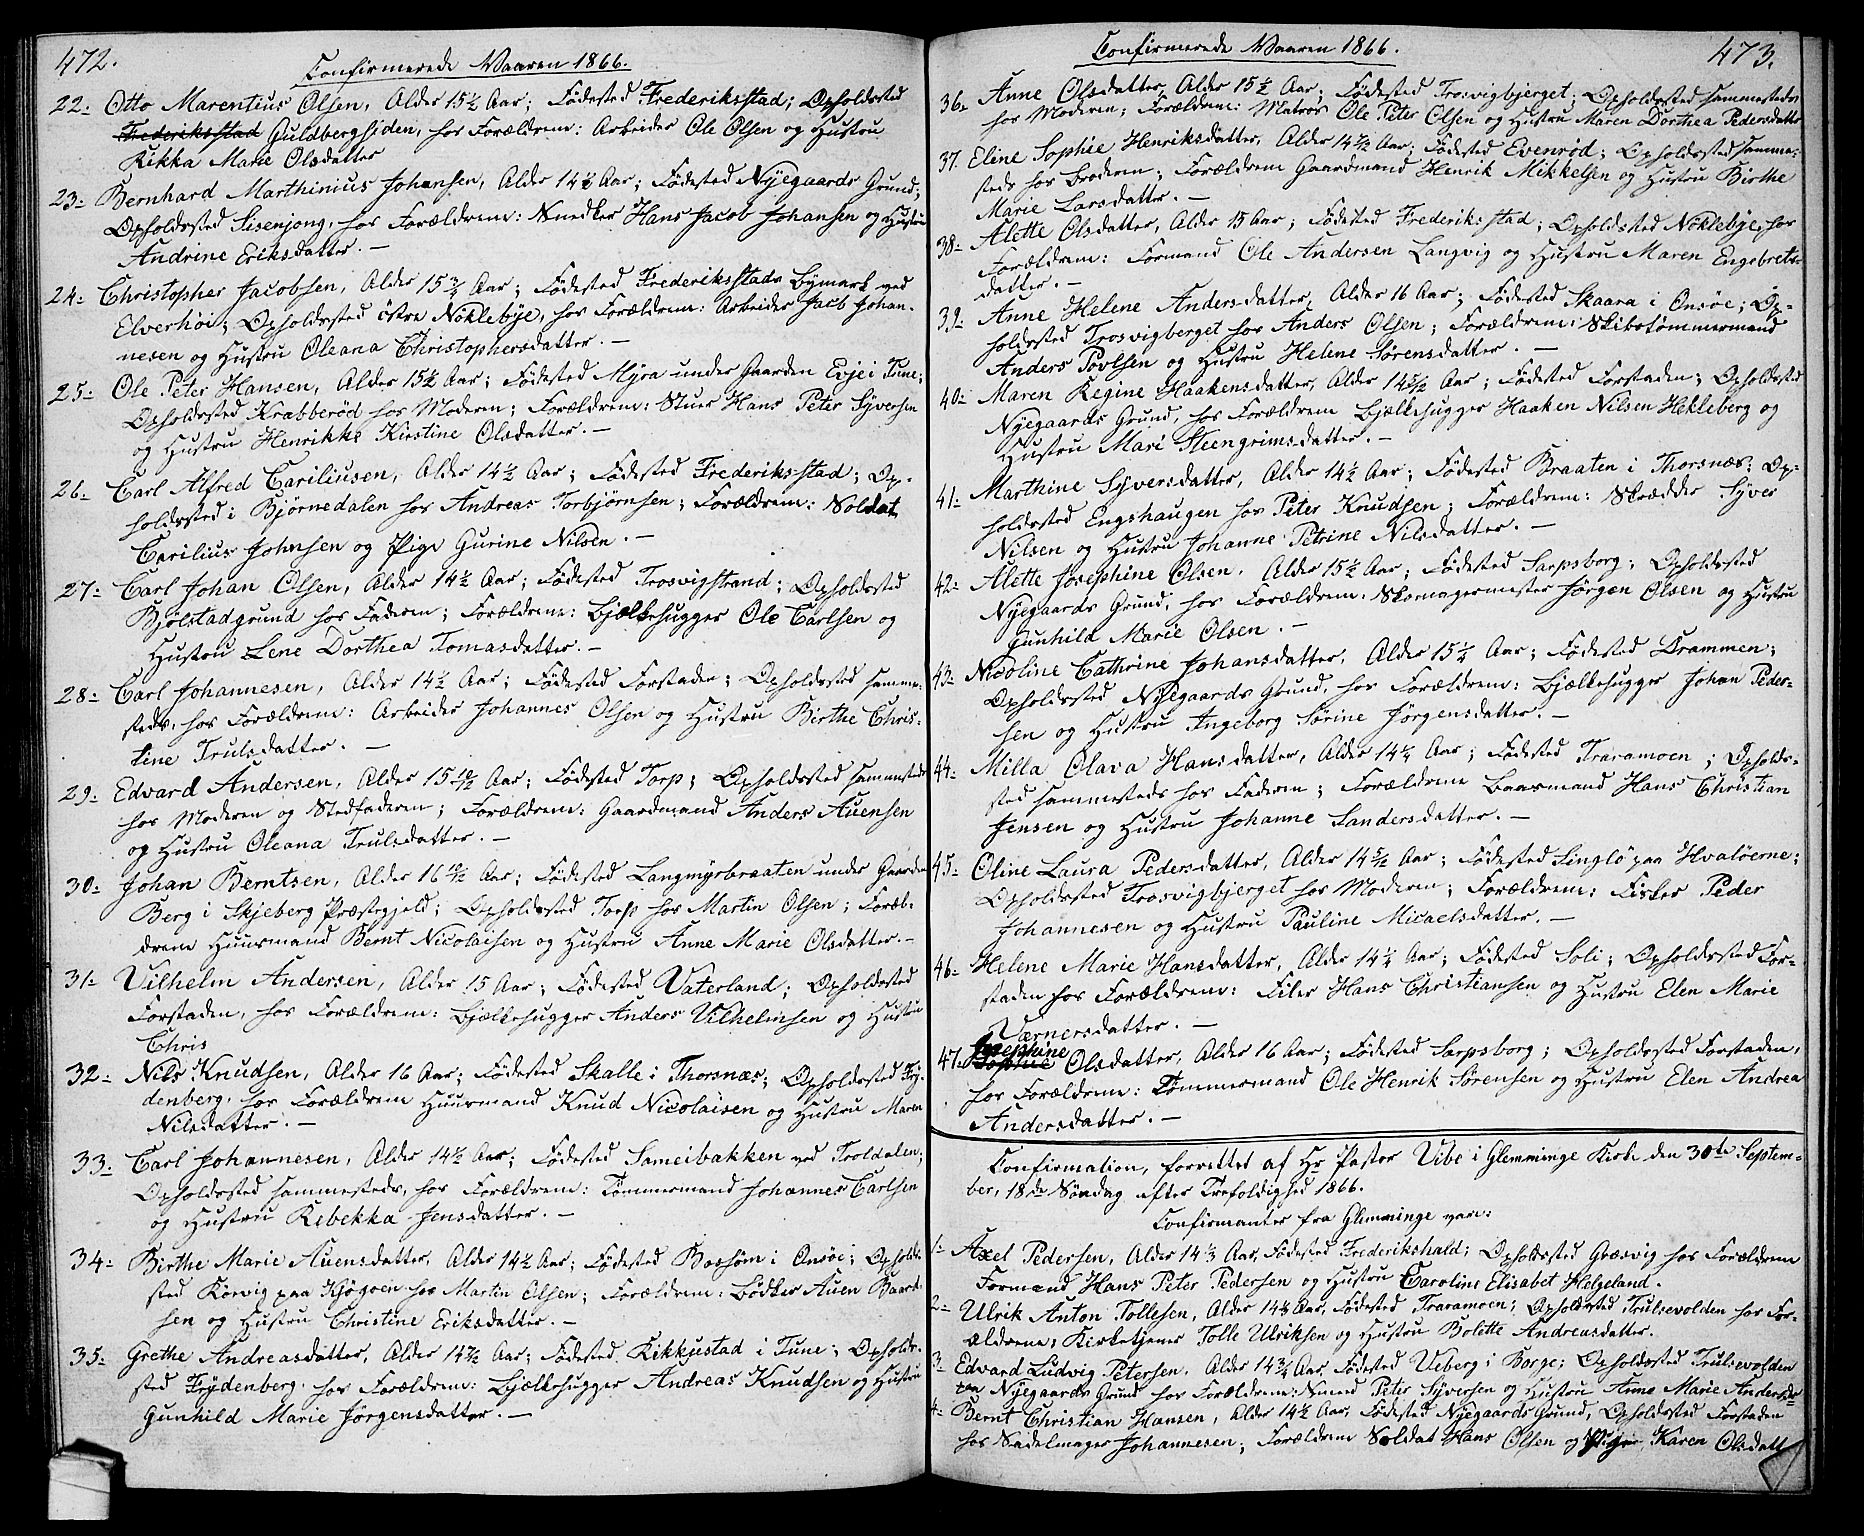 472.
Confirmerede Vaaren 1866.
22- Otto Marentius Olsen, Alder 15½ Aar; Födested Frederiksstad; Opholdssted
Frederiksstad Guldbergsiden, hos Forældrene: Arbeider Ole Olsen og Hustru
Kikka Marie Olsdatter
23- Bernhard Marthinius Johansen, Alder 14½ Aar; Födested Nyegaards Grund;
Opholdssted Sisenjong, hos Forældrene: Snedker Hans Jacob Johansen og Hustru
Andrine Eriksdatter. —
24- Christopher Jacobsen, Alder 15 Aar; Födested Frederiksstads Bymark ved
Elverhöi; Opholdssted östre Nöklebye, hos Forældrene: Arbeider Jacb Johan-
nesen og Hustru Oleana Christophersdatter. —
25- Ole Peter Hansen, Alder 15½ Aar; Födested Myra under Gaarden Evje i Tune;
Opholdssted Krabberöd hos Moderen; Forældrene: Stuer Hans Peter Syversen
og Hustru Henrikke Kirstine Olsdatter. —
26- Carl Alfred Cariliusen, Alder 14½ Aar; Födested Frederiksstad; Op-
holdssted i Björnedalen hos Andreas Torbjörnsen; Forældrene: Soldat
Carilius Johnsen og Pige Gurine Nilsen. —
27- Carl Johan Olsen, Alder 14½ Aar; Födested Trosvigstrand; Opholdssted
Bjölstadgrund hos Faderen; Forældrene: Bjælkehugger Ole Carlsen og
Hustru Lene Dorthea Tomasdatter. —
28- Carl Johannesen, Alder 14½ Aar; Födested Forstaden; Opholdssted samme-
steds, hos Forældrene: Arbeider Johannes Olsen og Hustru Birthe Chris-
tine Trulsdatter. —
29- Edvard Andersen, Alder 15 10/12 Aar; Födested Torp; Opholdssted sammesteds
hos Moderen og Stedfaderen; Forældrene: Gaardmand Anders Auensen
og Hustru Oleana Trulsdatter. —
30- Johan Berntsen, Alder 16 Aar; Födested Langmyrbraaten under Gaarden
Berg i Skjeberg Præstegjeld; Opholdssted Torp hos Martin Olsen; Foræl-
drene Huusmand Bernt Nicolaisen og Hustru Anne Marie Olsdatter. —
31- Vilhelm Andersen, Alder 15 Aar; Födested Vaterland; Opholdssted
Forstaden, hos Forældrene: Bjælkehugger Anders Vilhelmsen og Hustru
Chris
32- Nils Knudsen, Alder 16 Aar; Födested Skalle i Thorsnæs; Opholdssted Fry-
denberg, hos Forældrene Huusmand Knud Nicolaisen og Hustru Maren
Nilsdatter. —
33- Carl Johannesen, Alder 14½ Aar; Födested Sameibakken ved Troldalen;
Opholdssted sammesteds, hos Forældrene: Tömmermand Johannes Carlsen
og Hustru Rebekka Jensdatter. —
34- Birthe Marie Auensdatter, Alder 14½ Aar; Födested Boshöm i Onsöe; Opholds-
sted Körvig paa Kjögoen hos Martin Olsen; Forældrene: Bödker Auen Baard-
sen og Hustru Christine Eriksdatter. —
35- Grethe Andreasdatter, Alder 14 Aar; Födested Kikkjustad i Tune; Opholds-
sted Frydenberg, hos Forældrene: Bjælkehugger Andreas Knudsen og Hustru
Gunhild Marie Jörgensdatter. —
473.
Confirmerede Vaaren 1866.
36- Anne Olsdatter, Alder 15½ Aar; Födested Trosvigbjerget; Opholdssted sammesteds
hos Moderen; Forældrene: Matros Ole Peter Olsen og Hustru Maren Dorthea Pedersdatter
37. Eline Sophie Henriksdatter, Alder 14½ Aar; Födested Evenröd; Opholdssted samme-
steds hos Broderen; Forældrene Gaardmand Henrik Mikkelsen og Hustru Birthe
Marie Larsdatter. —
38- Alette Olsdatter, Alder 15 Aar; Födested Frederiksstad; Opholdssted Nöklebye, hos
Forældrene: Formand Ole Andersen Langvig og Hustru Maren Engebrets-
datter. —
39- Anne Helene Andersdatter, Alder 16 Aar; Födested Skaara i Onsöe; Op-
holdssted Trosvigberget hos Anders Olsen; Forældrene: Skibstömmermand
Anders Povlsen og Hustru Helene Sörensdatter. —
40- Maren Regine Haakensdatter, Alder 14 5/12 Aar; Födested Forstaden; Opholdssted
Nyegaards Grund, hos Forældrene Bjælkehugger Haaken Nilsen Hekleberg og
Hustru Mari Steengrimsdatter. —
41- Marthine Syversdatter, Alder 14½ Aar; Födested Braaten i Thorsnæs; Op-
holdssted Engshaugen hos Peter Knudsen; Forældrene: Skrædder Syver
Nilsen og Hustru Johanne Petrine Nilsdatter. —
42- Alette Josephine Olsen, Alder 15½ Aar; Födested Sarpsborg; Opholdssted
Nyegaards Grund, hos Forældrene: Skomagermester Jörgen Olsen og Hustru
Gunhild Marie Olsen. —
43- Nicoline Cathrine Johansdatter, Alder 15¼ Aar; Födested Drammen;
Opholdssted Nyegaards Grund, hos Forældrene: Bjælkehugger Johan Peder-
sen og Hustru Ingeborg Sörine Jörgensdatter. —
44- Milla Olava Hansdatter, Alder 14¼ Aar; Födested Traramoen; Opholds-
sted sammesteds hos Faderen; Forældrene Baarmand Hans Christian
Jensen og Hustru Johanne Sandersdatter. —
45- Oline Laura Pedersdatter, Alder 14 5/12 Aar; Födested Singlö paa Hvalöerne;
Opholdssted Trosvigbjerget hos Moderen; Forældrene: Fisker Peder
Johannesen og Hustru Pauline Micaelsdatter. —
46- Helene Marie Hansdatter, Alder 14¼ Aar; Födested Soli; Opholdssted For-
staden hos Forældrene: Filer Hans Christiansen og Hustru Elen Marie
Værnersdatter. —
Josephine
47. Sophie Olsdatter, Alder 16 Aar; Födested Sarpsborg; Opholdssted Forstaden,
hos Forældrene: Tömmermand Ole Henrik Sörensen og Hustru Elen Andrea
Andersdatter. —
Confirmation, forrettet af Hr Pastor Vibe i Glemminge Kirke den 30te Septem-
ber, 18de Söndag efter Trefoldighed 1866.
Confirmanter fra Glemminge vare:
1- Axel Pedersen, Alder 14⅓ Aar, Födested Frederikshald; Opholdssted Græsvig hos Forældrene
Formand Hans Peter Pedersen og Hustru Caroline Elisabet Helgeland.
2- Ulrik Anton Tollesen, Alder 14 Aar, Födested Traramoen; Opholdssted Trulsevolden hos For-
ældrene: Kirketjener Tolle Ulriksen og Hustru Bolette Andreasdatter.
3- Edvard Ludvig Petersen, Alder 14¾ Aar, Födested Ueberg i Borge; Opholdssted Trulsevolden
paa Nyegaards Grund hos Forældrene: Smed Peter Syversen og Hustru Anne Marie Andersdr
4- Bernt Christian Hansen, Alder 14½ Aar, Födested Nyegaards Grund, Opholdssted Forstaden
hos Sadelmager Johannesen; Forældrene Soldat Hans Olsen og Pige Karen Olsdatt